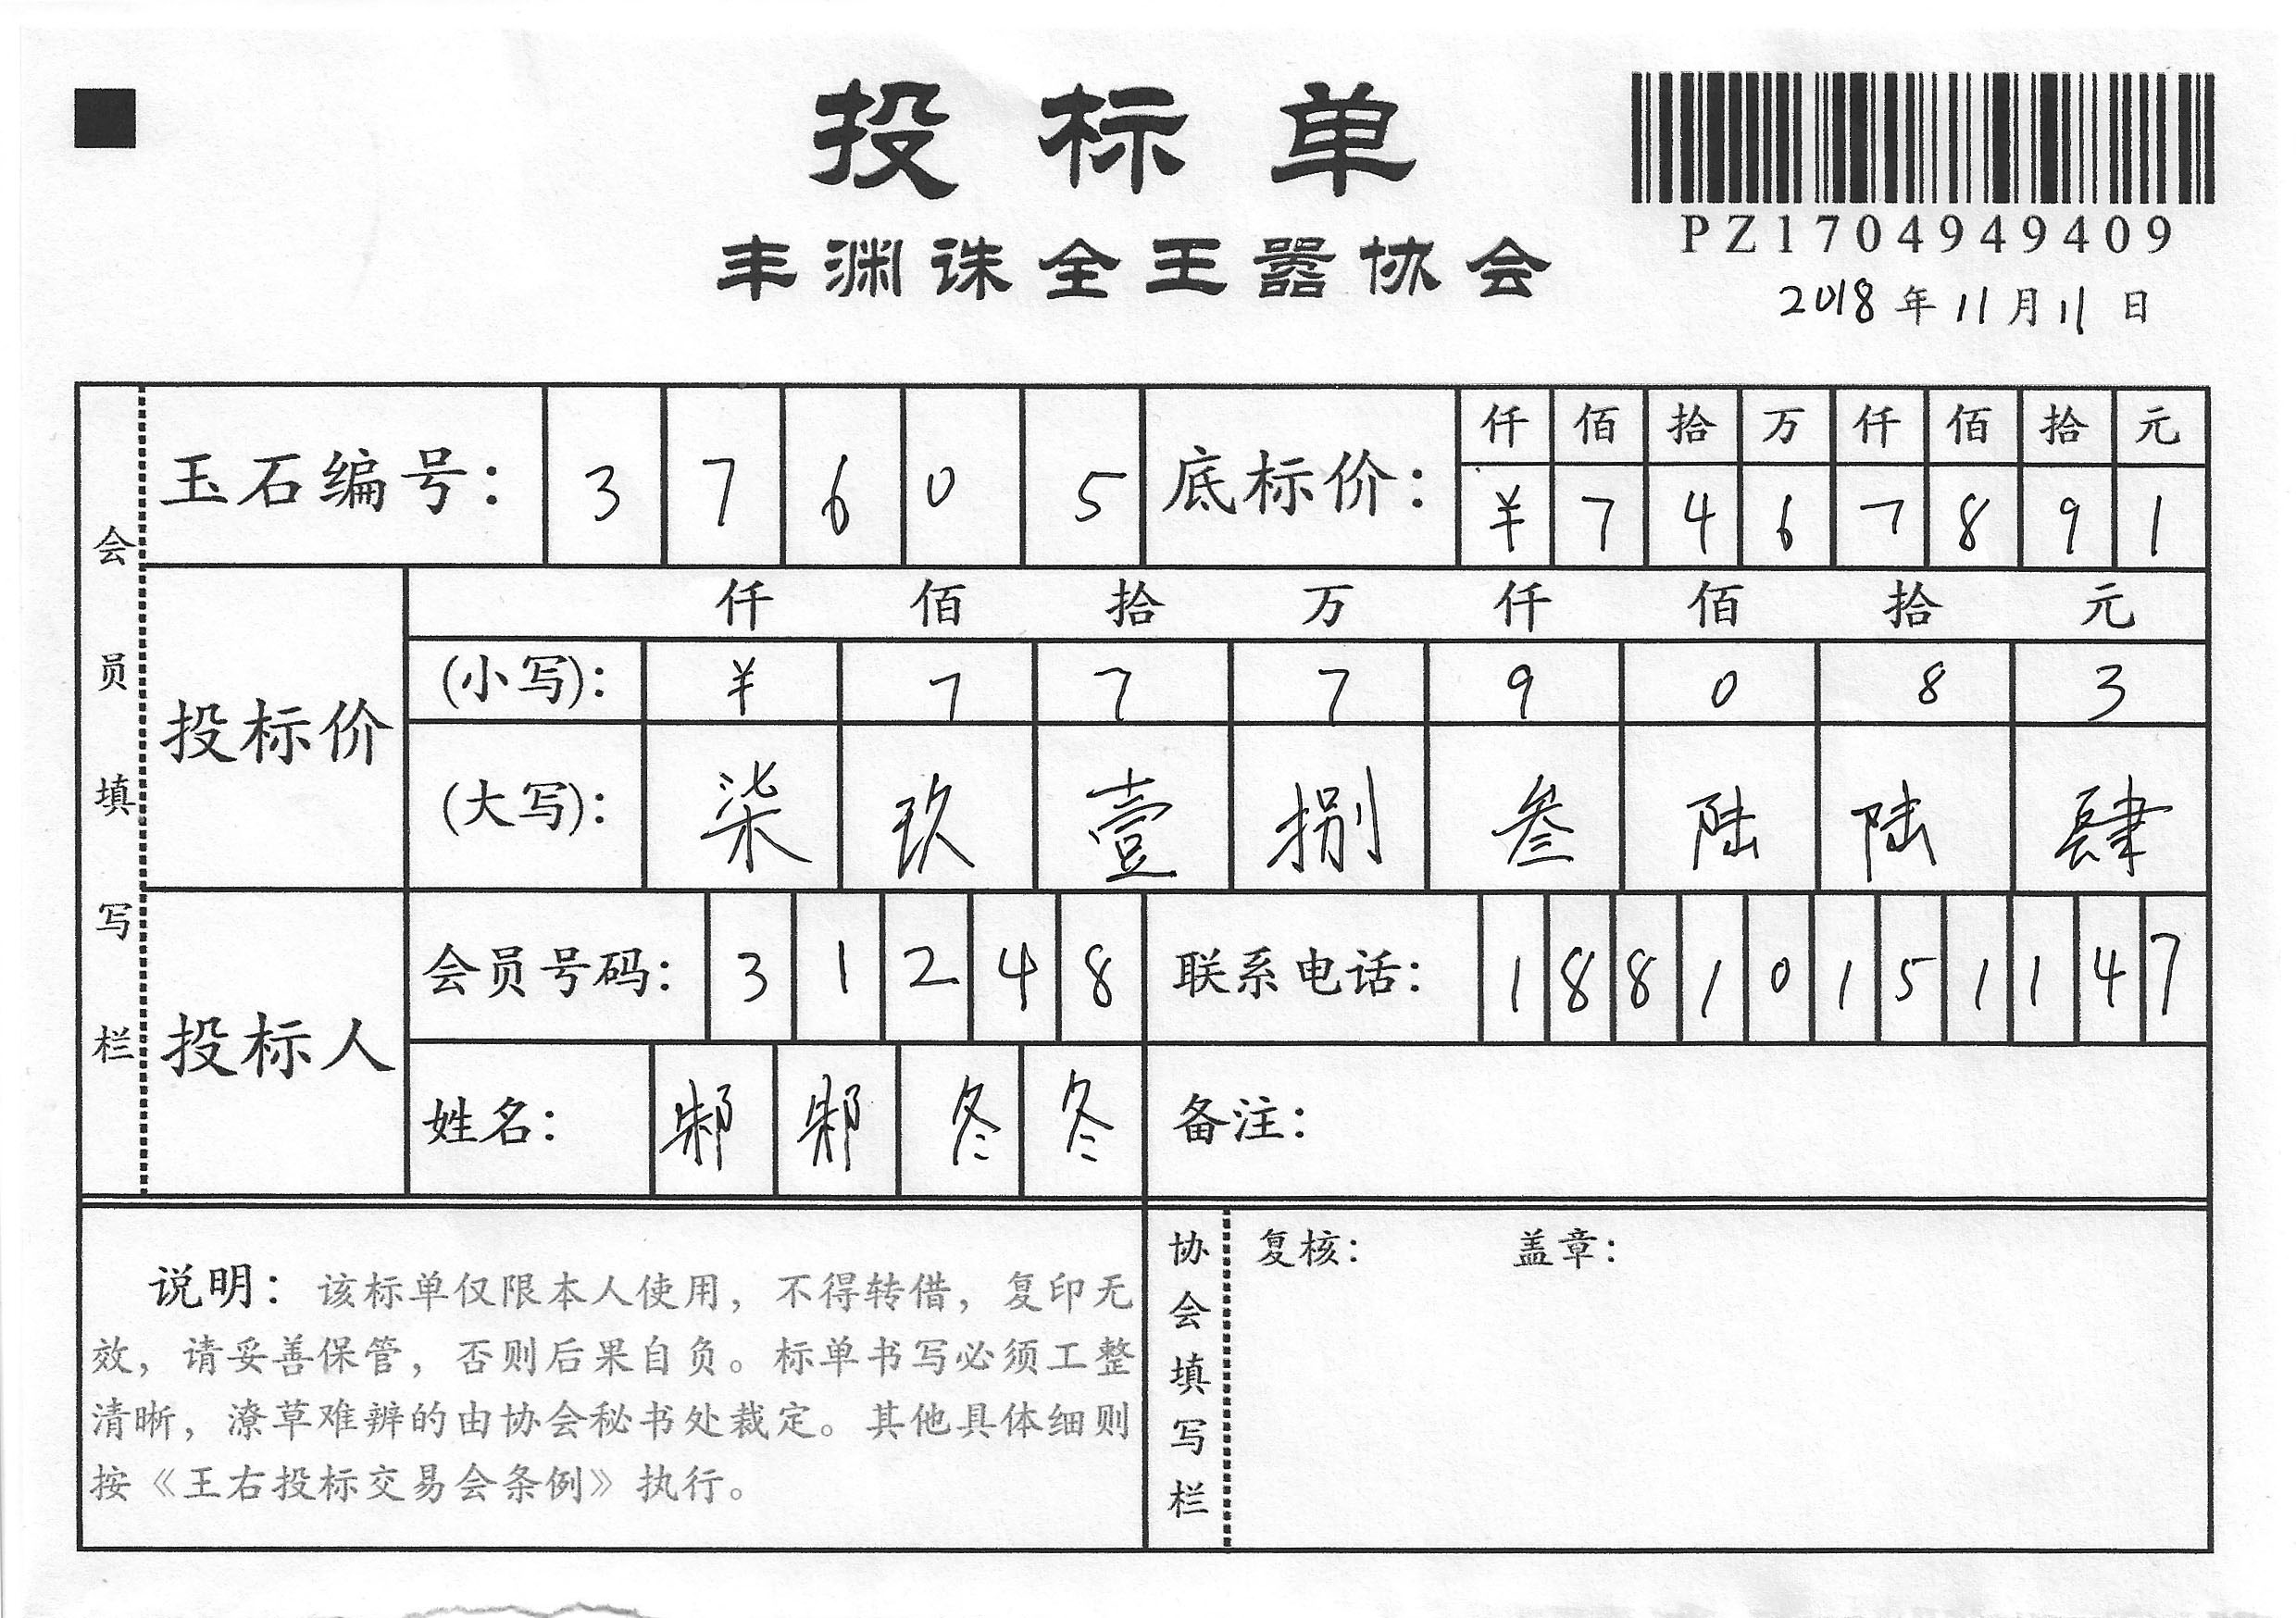 投标单
丰渊诛全王嚣协会
PZ1704949409
2018年11月11日
会员填写栏
玉石编号: 3 7 6 0 5
底标价: 仟 佰 拾 万 仟 佰 拾 元
¥ 7 4 6 7 8 9 1
投标价
仟 佰 拾 万 仟 佰 拾 元
(小写): ¥ 7 7 7 9 0 8 3
(大写): 柒 玖 壹 捌 叁 陆 陆 肆
投标人
会员号码: 3 1 2 4 8
联系电话: 1 8 8 1 0 1 5 1 1 4 7
姓名: 邾 邾 冬 冬
备注:
说明: 该标单仅限本人使用，不得转借，复印无
效，请妥善保管，否则后果自负。标单书写必须工整
清晰，潦草难辨的由协会秘书处裁定。其他具体细则
按《王右投标交易会条例》执行。
协会填写栏
复核: 盖章: